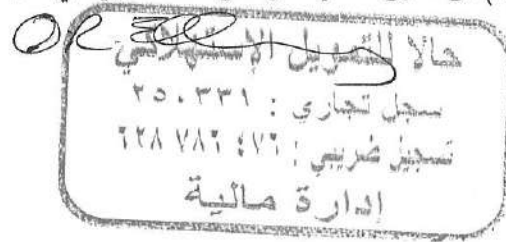 حالا للتمويل الإستهلاكي
سجل تجاري : ٢٥٠٣٣١
تسجيل ضريبي : ٤٧٦ ٧٨٢ ٦٢٨
إدارة مالية